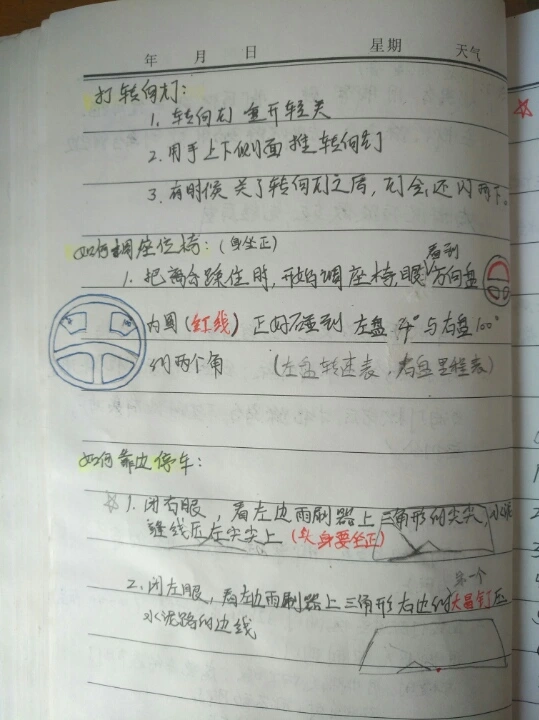 年 月 日 星期 天气
打转向灯:
1. 转向灯重开轻关
2. 用手上下侧面推转向灯
3. 有时候关了转向灯之后,灯会还闪两下。
如何调座位椅:(身坐正)
1. 把离合踩住时,开始调座椅,眼看到方向盘
内圆(红线)正好碰到左盘"4"与右盘100"
的两个角 (左盘转速表,右盘里程表)
如何靠边停车:
☆1. 闭右眼,看左边雨刷器上三角形的尖尖,水泥
缝线压左尖尖上(头身要坐正)
2. 闭左眼,看左边雨刷器上三角形右边的第一个大晶钉压
水泥路的边线